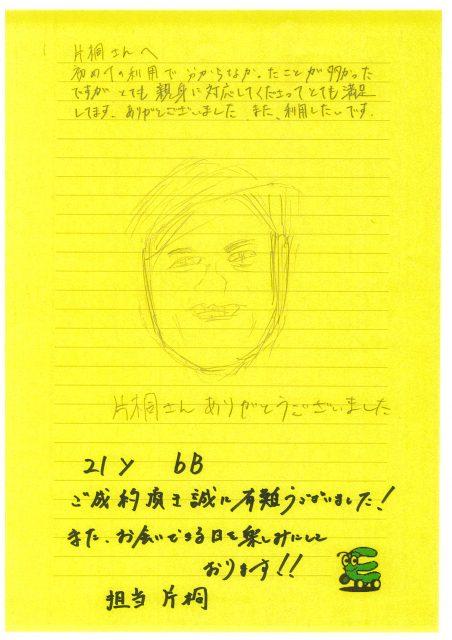 片桐さんへ
初めての利用で分からなかったことが多かった
ですがとても親身に対応してくださってとても満足
してます。ありがとうございました また、利用したいです。
片桐さんありがとうございました
21y bB
ご成約頂き誠に有難うございました!
また、お会いできる日を楽しみにして
おります!!
担当 片桐